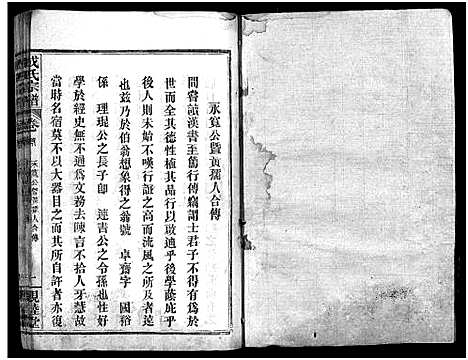 永寬公暨黃孺人合傳
間嘗讀漢書至篤行傳竊謂士君子不得有為於時
而全其德性植其品行以啟迪乎後學蔭庇乎
後人則未始不嘆行誼之高而流風之所及者遠
也茲乃於伯翁想象得之翁號 卓齋字 國裕
係 理琨公之長子即 達吉公之令孫也性好
學於經史無不通為文務去陳言不拾人牙慧故
當時名宿莫不以大器目之而其所自許者亦復
氏宗譜
卷
永寬公暨黃孺人合傳
一
親睦堂